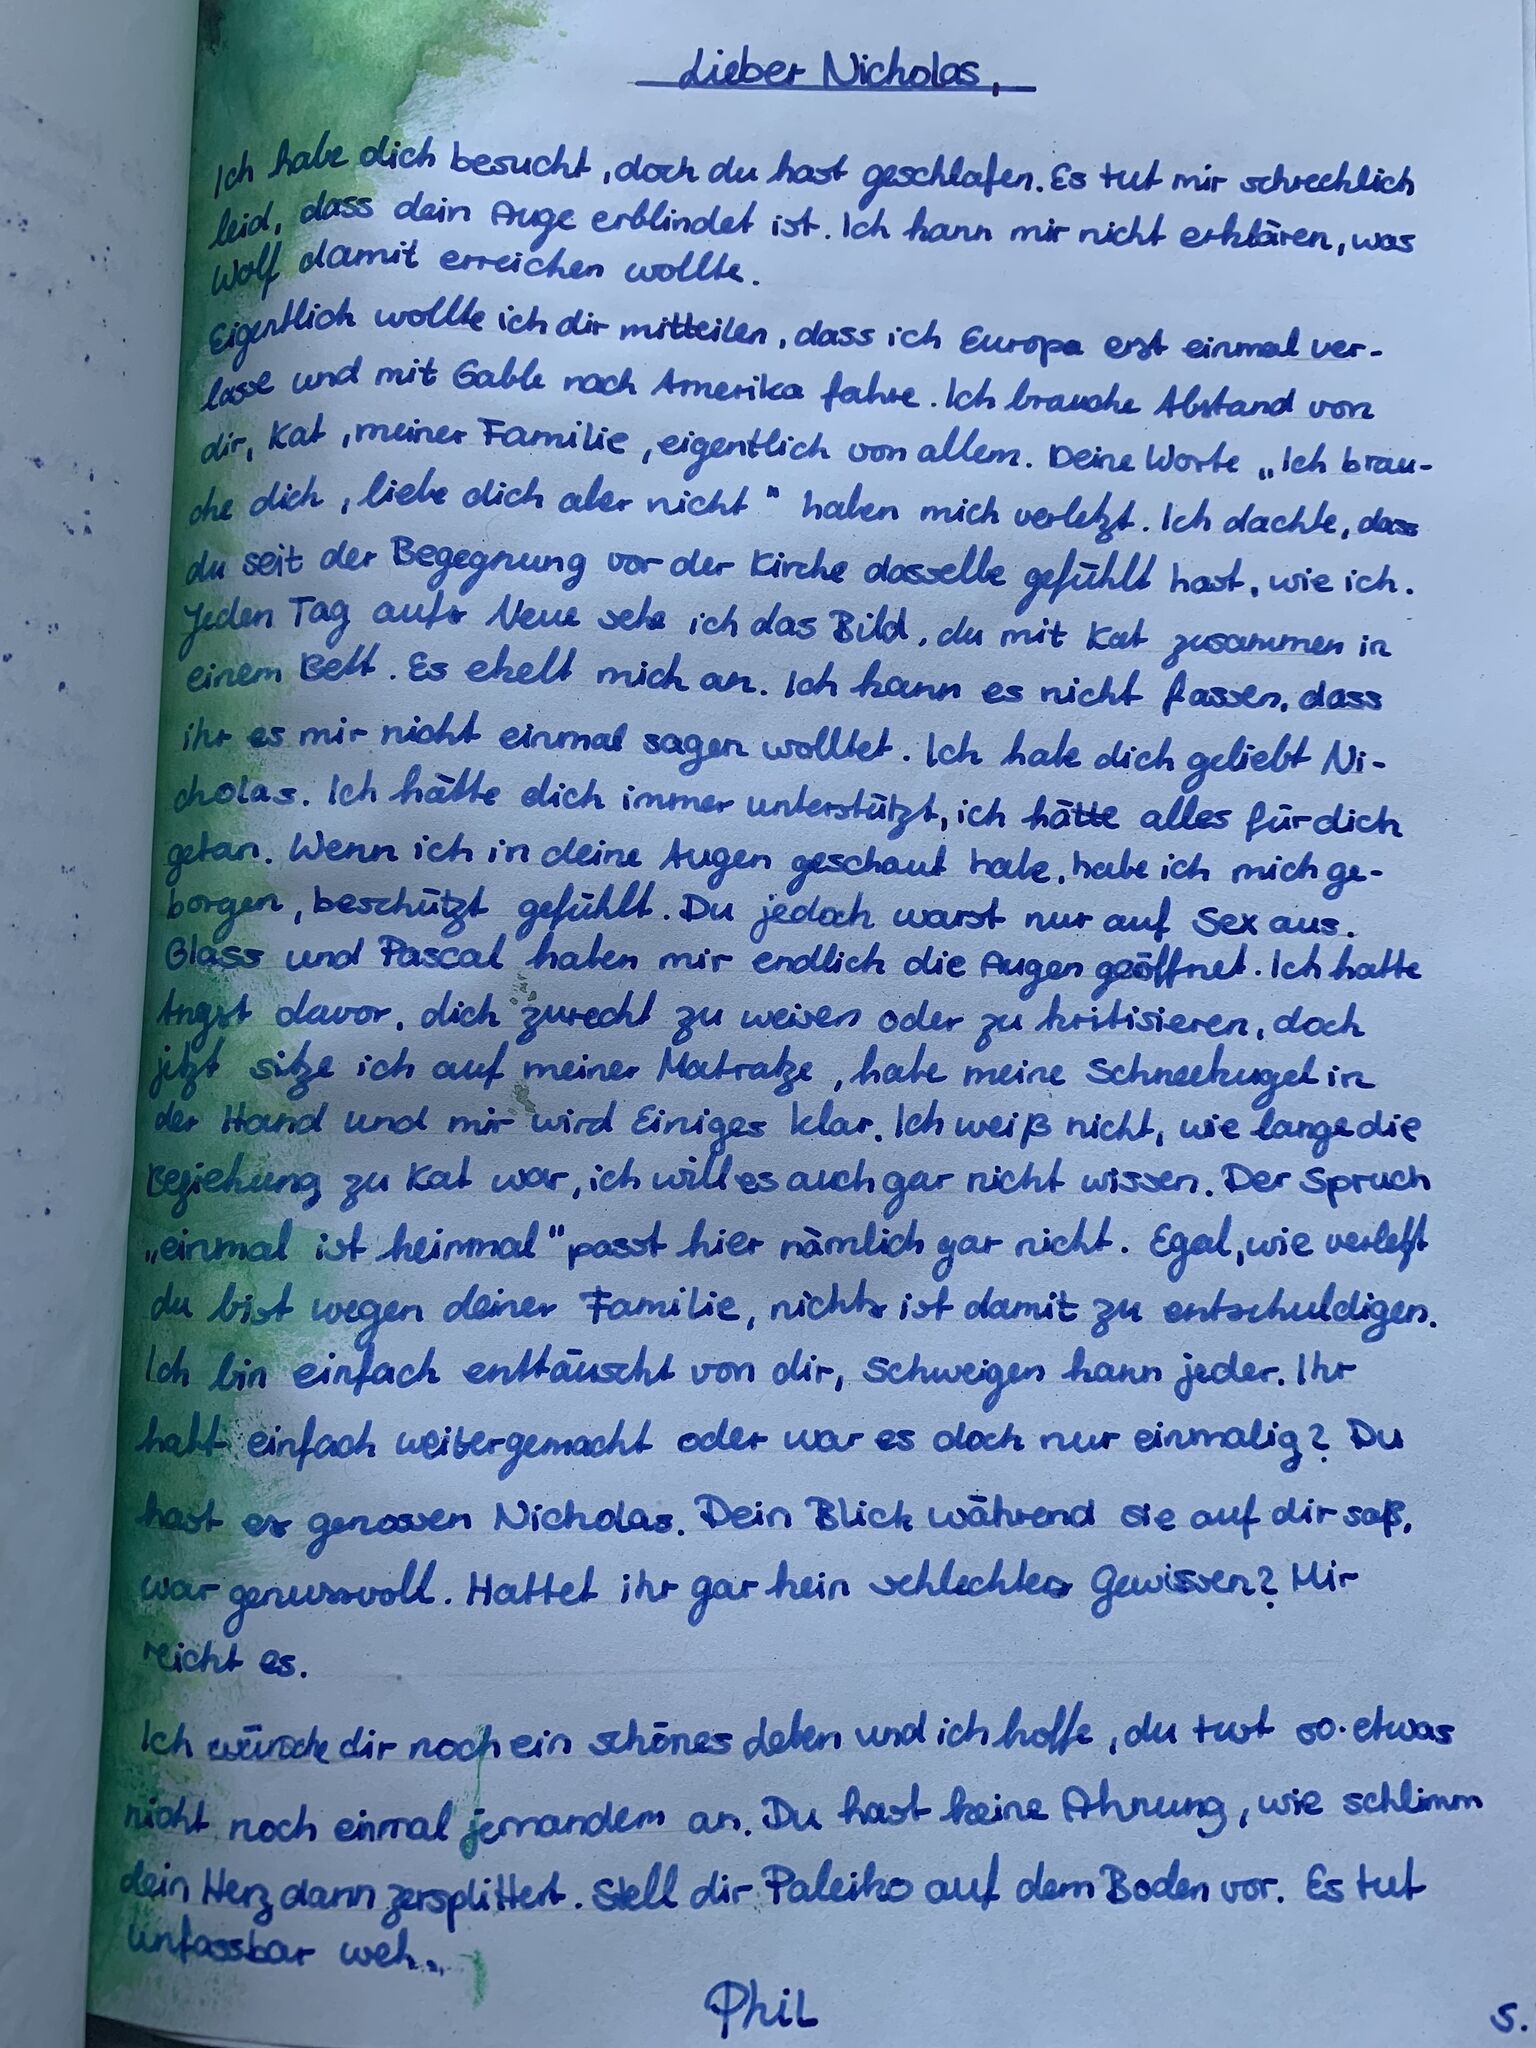 Lieber Nicholas,
Ich habe dich besucht, doch du hast geschlafen. Es tut mir schrecklich
leid, dass dein Auge erblindet ist. Ich kann mir nicht erklären, was
Wolf damit erreichen wollte.
Eigentlich wollte ich dir mitteilen, dass ich Europa erst einmal ver-
lasse und mit Gable nach Amerika fahre. Ich brauche Abstand von
dir, Kat, meiner Familie, eigentlich von allem. Deine Worte „Ich brau-
che dich, liebe dich aber nicht" haben mich verletzt. Ich dachte, dass
du seit der Begegnung vor der Kirche dasselbe gefühlt hast, wie ich.
Jeden Tag aufs Neue sehe ich das Bild, du mit Kat zusammen in
einem Bett. Es ekelt mich an. Ich kann es nicht fassen, dass
ihr es mir nicht einmal sagen wolltet. Ich habe dich geliebt Ni-
cholas. Ich hätte dich immer unterstützt, ich hätte alles für dich
getan. Wenn ich in deine Augen geschaut habe, habe ich mich ge-
borgen, beschützt gefühlt. Du jedoch warst nur auf Sex aus.
Glass und Pascal haben mir endlich die Augen geöffnet. Ich hatte
Angst davor, dich zurecht zu weisen oder zu kritisieren, doch
jetzt sitze ich auf meiner Matratze, habe meine Schneekugel in
der Hand und mir wird Einiges klar. Ich weiß nicht, wie lange die
Beziehung zu Kat war, ich will es auch gar nicht wissen. Der Spruch
„einmal ist keinmal" passt hier nämlich gar nicht. Egal, wie verletzt
du bist wegen deiner Familie, nichts ist damit zu entschuldigen.
Ich bin einfach enttäuscht von dir, Schweigen kann jeder. Ihr
habt einfach weitergemacht oder war es doch nur einmalig? Du
hast es genossen Nicholas. Dein Blick während sie auf dir saß,
war genussvoll. Hattet ihr gar kein schlechtes Gewissen? Mir
reicht es.
Ich wünsche dir noch ein schönes Leben und ich hoffe, du tust so etwas
nicht noch einmal jemandem an. Du hast keine Ahnung, wie schlimm
dein Herz dann zersplittert. Stell dir Paleiko auf dem Boden vor. Es tut
unfassbar weh...
Phil
5.